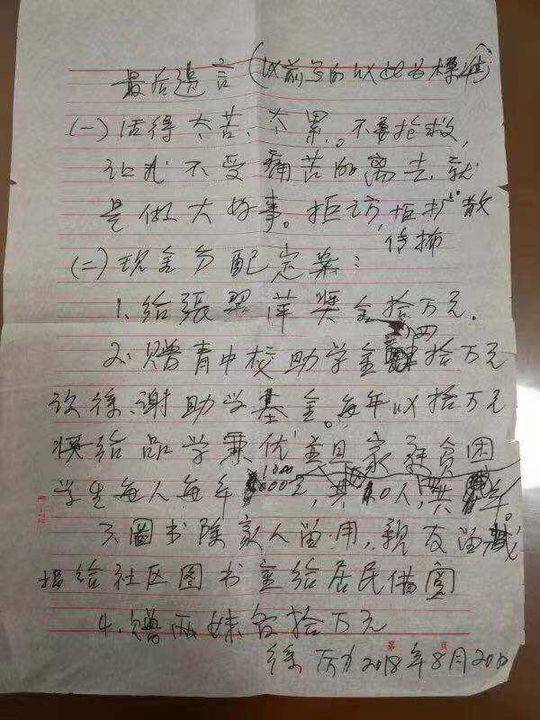 最后遗言(以前写的以此为標准)
(一)活得太苦、太累。不要抢救,
让我不受痛苦的离去,就
是做大好事。拒访,拒扩散
传播
(二)现金分配定案:
1.给張翠萍奬金拾万元.
四
2.赠青中校助学金拾万元
设徐、谢助学基金。每年以拾万元
给品学兼优 且家庭贫困
1000
学生每人每年 元,共 10人,共 年。
3.圖书除家人留用,親友留藏
捐给社区图书室给居民借閲
4.赠两妹各拾万元
徐 2018年8月20日